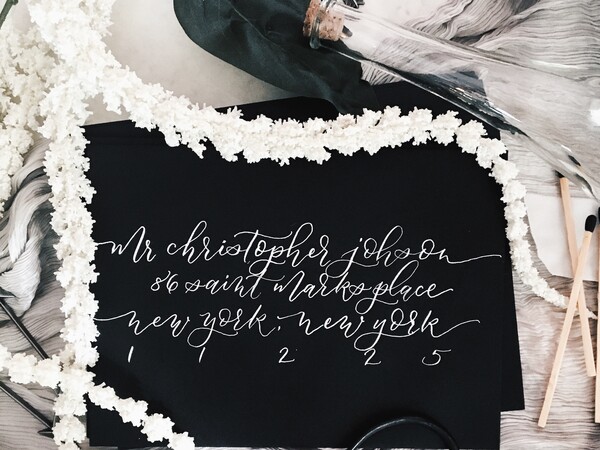 Mr christopher johson
86 saint marks place
new york, new york
1 1 2 2 5